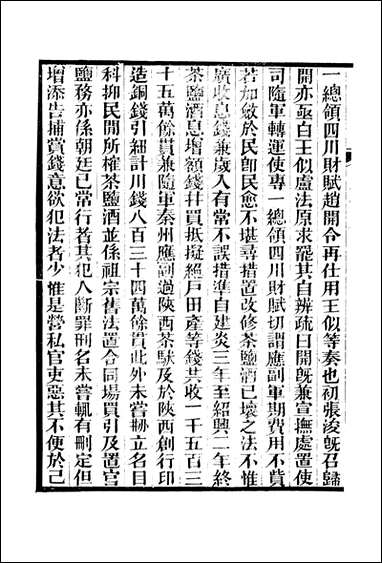 一總領四川財賦趙開令再任用王似等奏也初張浚旣召歸
開亦亟白王似盧法原求罷其自辨疏曰開旣兼宣撫處置使
司隨軍轉運使專一總領四川財賦切謂應副軍期費用不貲
若加斂於民卽民愈不堪尋措置改修茶鹽酒已壞之法不惟
廣收息錢兼歲入有常不誤措準自建炎三年至紹興二年終
茶鹽酒息增額錢幷買抵拟絕戸田產等錢共收一千五百三
十五萬餘貫兼隨軍秦州應副過陝西茶馱及於陝西創行印
造銅錢引紐計川錢八百三十四萬餘貫此外未嘗剏立名目
科抑民閒所榷茶鹽酒並係祖宗舊法置合同場買引及置官
鹽務亦係朝廷已常行者其犯人斷罪刑名未嘗輒有刪定但
增添告捕賞錢意欲犯法者少惟是營私官吏惡其不便於己